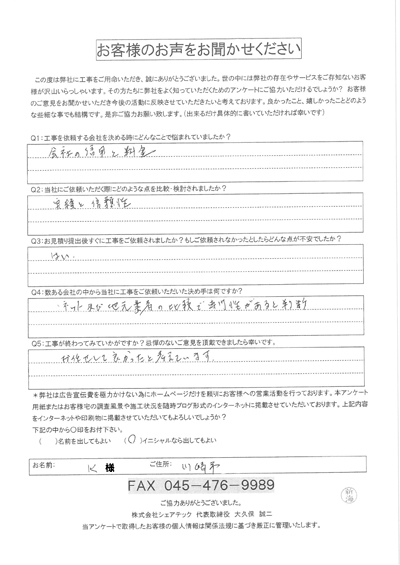 お客様のお声をお聞かせください
この度は弊社に工事をご用命いただき、誠にありがとうございました。世の中には弊社の存在やサービスをご存知ないお客
様が沢山いらっしゃいます。その方たちに弊社をよく知っていただくためのアンケートにご協力いただけるでしょうか？ お客様
のご意見をお聞かせいただき今後の活動に反映させていただきたいと考えております。良かったこと、嬉しかったことどのよう
な些細な事でも結構です。是非ご協力お願い致します。(出来るだけ具体的に書いていただければ幸いです)
Q1：工事を依頼する会社を決める時にどんなことで悩まれていましたか？
会社の信用と料金
Q2：当社にご依頼いただく際にどのような点を比較・検討されましたか？
実績と信頼性
Q3：お見積り提出後すぐに工事をご依頼されましたか？もしご依頼されなかったとしたらどんな点が不安でしたか？
はい
Q4：数ある会社の中から当社に工事をご依頼いただいた決め手は何ですか？
ネット及び地元業者の比較で専門性があると判断
Q5：工事が終わってみていかがですか？忌憚のないご意見を頂戴できましたら幸いです。
お任せして良かったと考えています。
＊弊社は広告宣伝費を極力かけない為にホームページだけを頼りにお客様への営業活動を行っております。本アンケート
用紙またはお客様宅の調査風景や施工状況を随時ブログ形式のインターネットに掲載させていただいております。上記内容
をインターネットや印刷物に掲載させていただいてもよろしいでしょうか？
下記の中から〇印をお付下さい。
(　)名前を出してもよい　(〇)イニシャルなら出してもよい
お名前： K 様　ご住所： 川崎市
FAX 045－476－9989
ご協力ありがとうございました。
株式会社シェアテック 代表取締役 大久保 誠二
当アンケートで取得したお客様の個人情報は関係法規に基づき厳正に管理いたします。